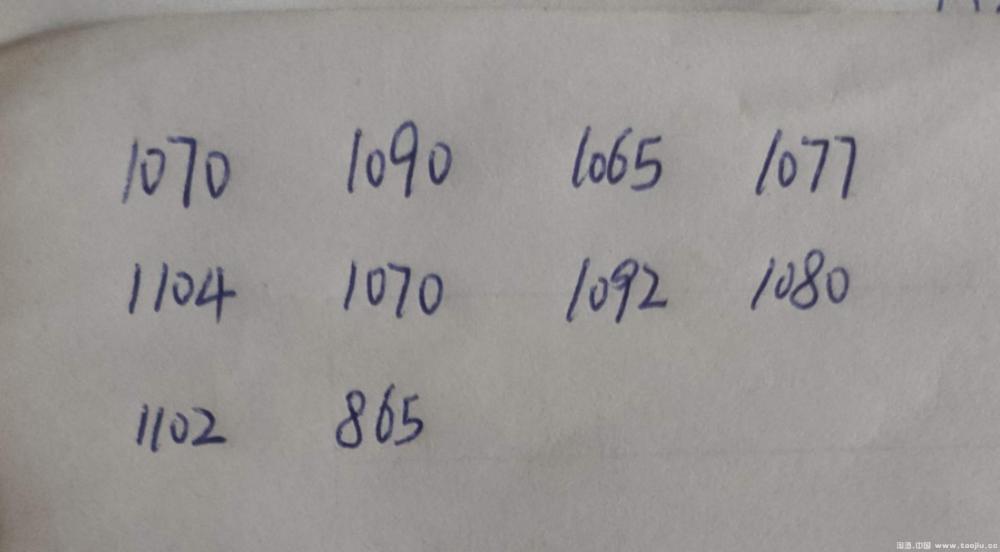 1070 1090 1065 1077
1104 1070 1092 1080
1102 865
淘酒.中国 www.taojiu.cc